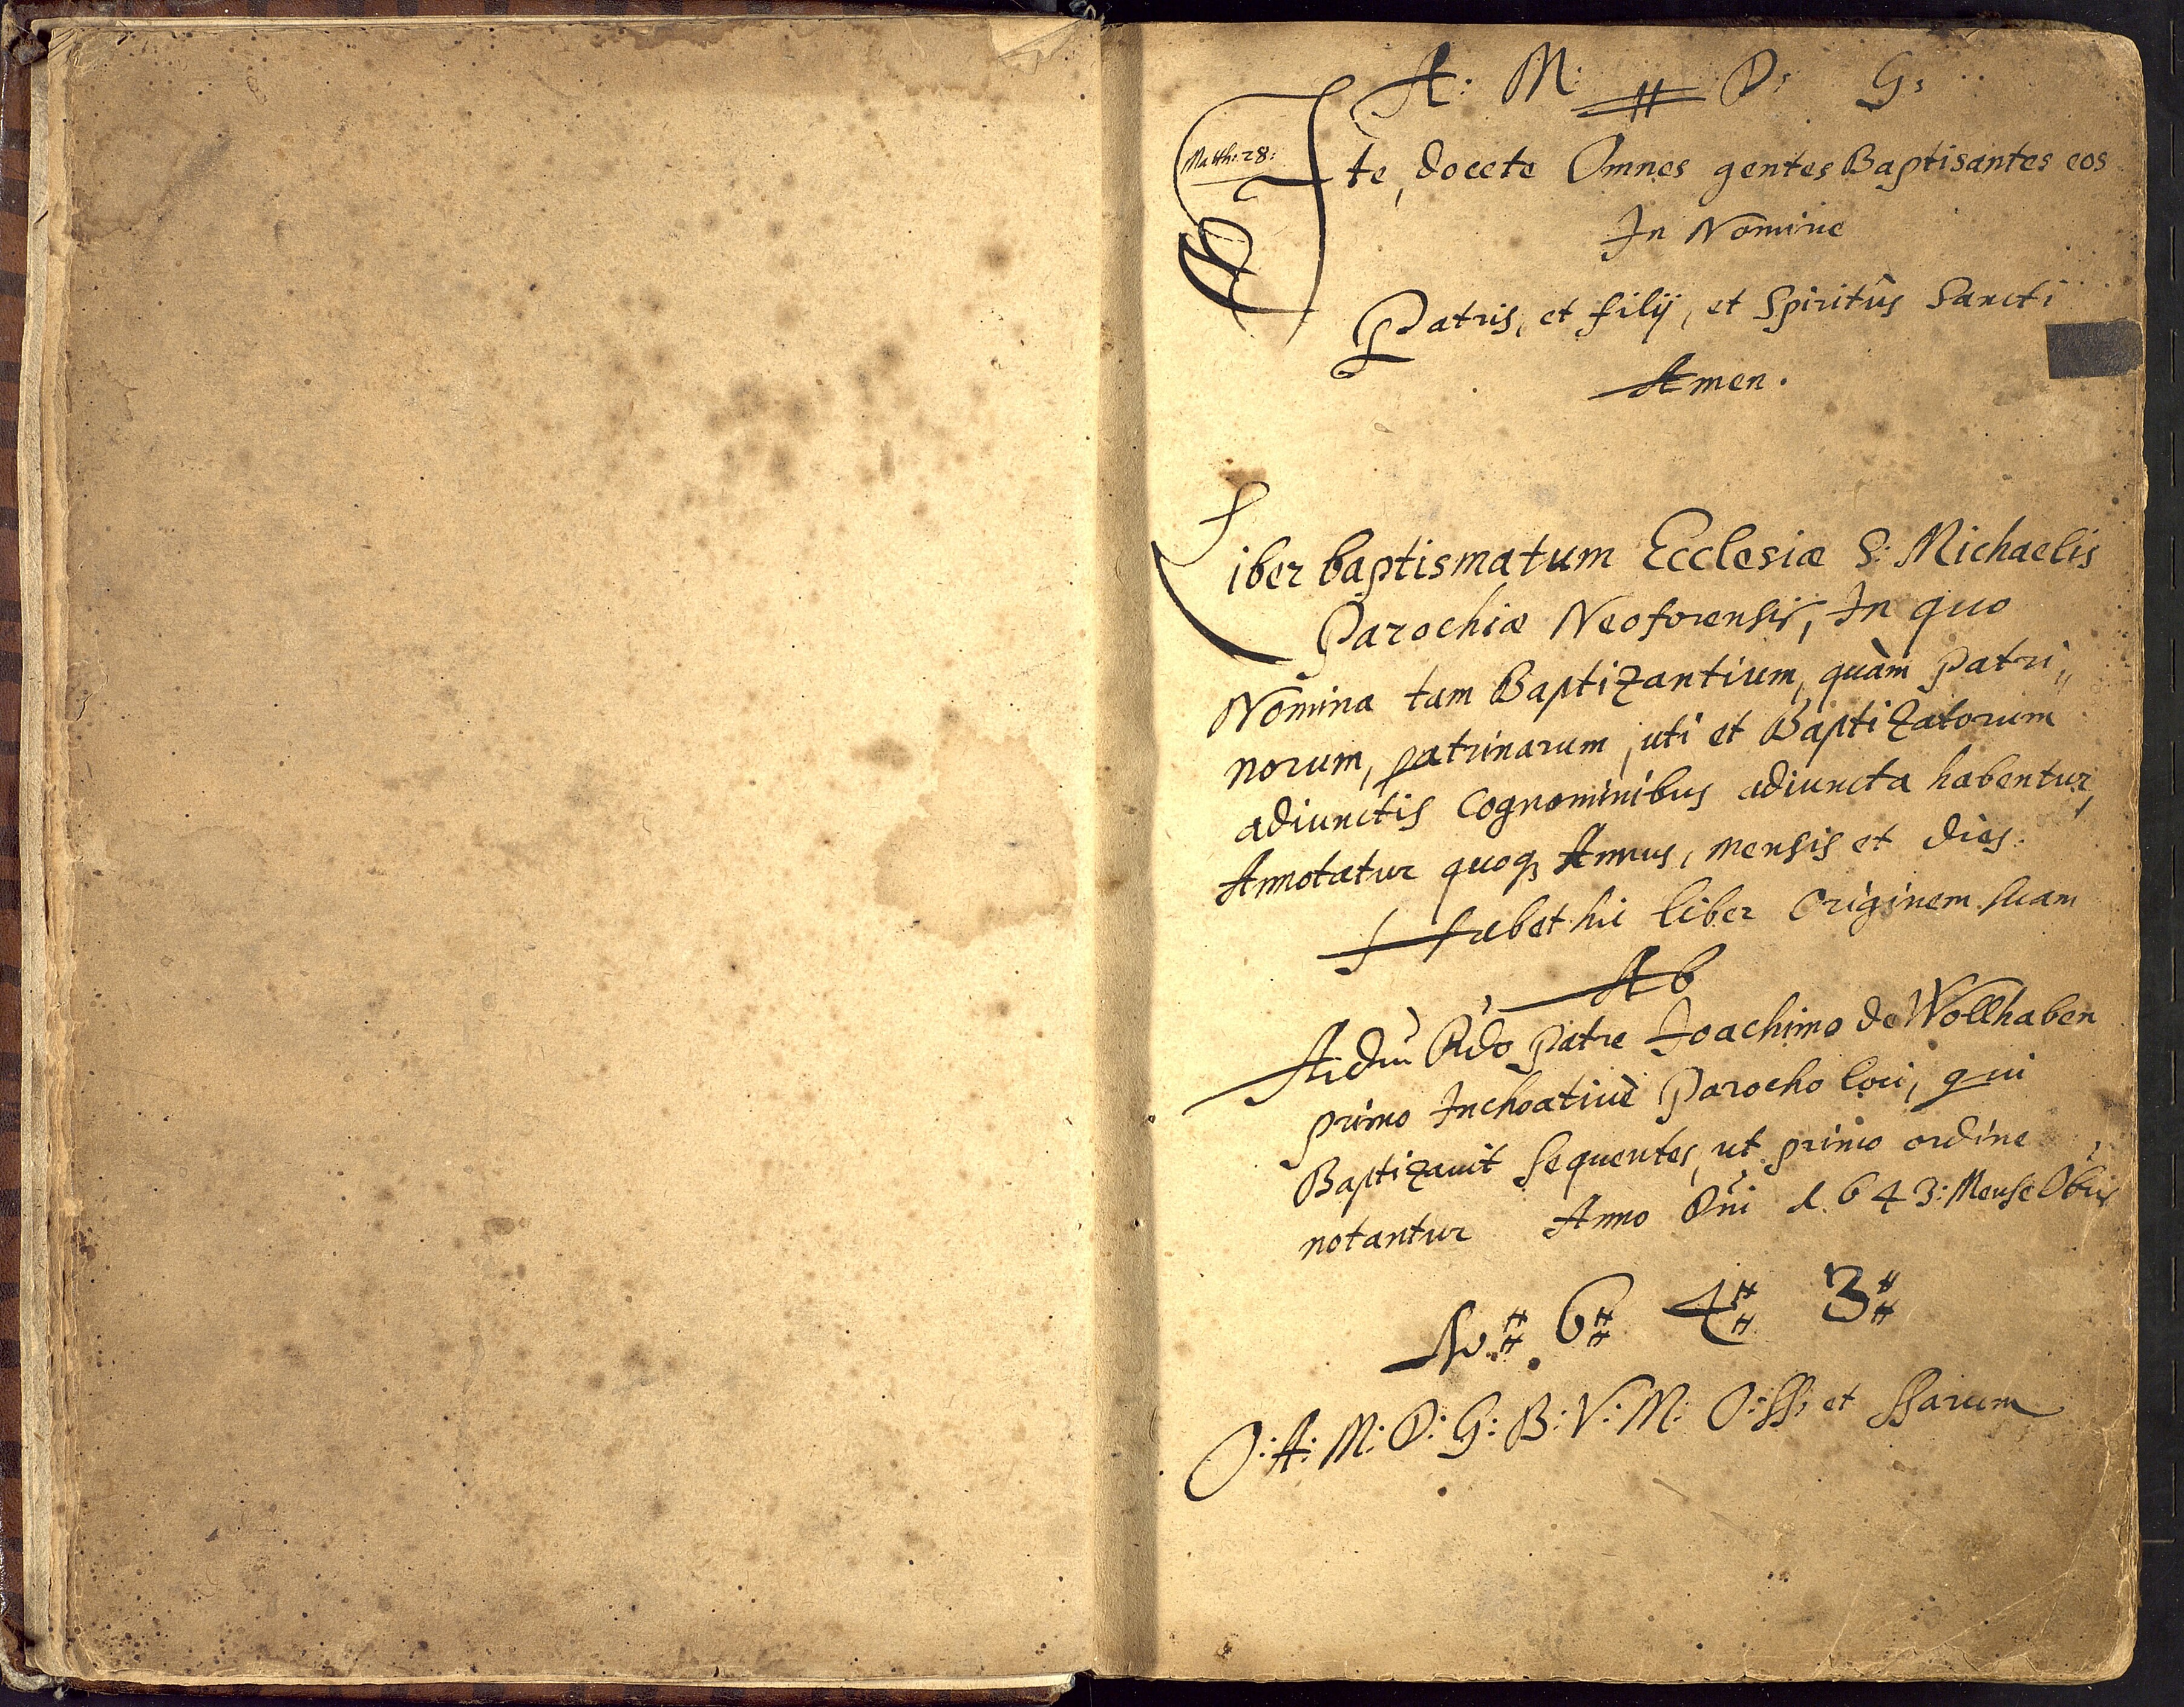 A: M: D: G:
Matth: 28:
Ite, docete Omnes gentes Baptisantes eos
In Nomine
Patris, et filij, et Spiritûs Sancti
Amen.
Liber baptismatum Ecclesiæ S: Michaelis
Parochiæ Neoforensis, In quo
Nomina tam Baptizantium, quàm Patri„
norum, patrinarum, uti et Baptizatorum
adiunctis Cognominibus adiuncta habentur,
Annotatur quoq3 Annus, mensis et dies.
Habet hic liber Originem suam
Ab
Rdo Patre Joachimo de Wollhaben
primo Inchoatiuè Parocho loci, qui
Baptizauit sequentes, ut primo ordine
notantur Anno Dni 1.643: Mense 8bris
1 6 4 3
O: A: M: D: G: B: V: M: O: SS: et SSarum